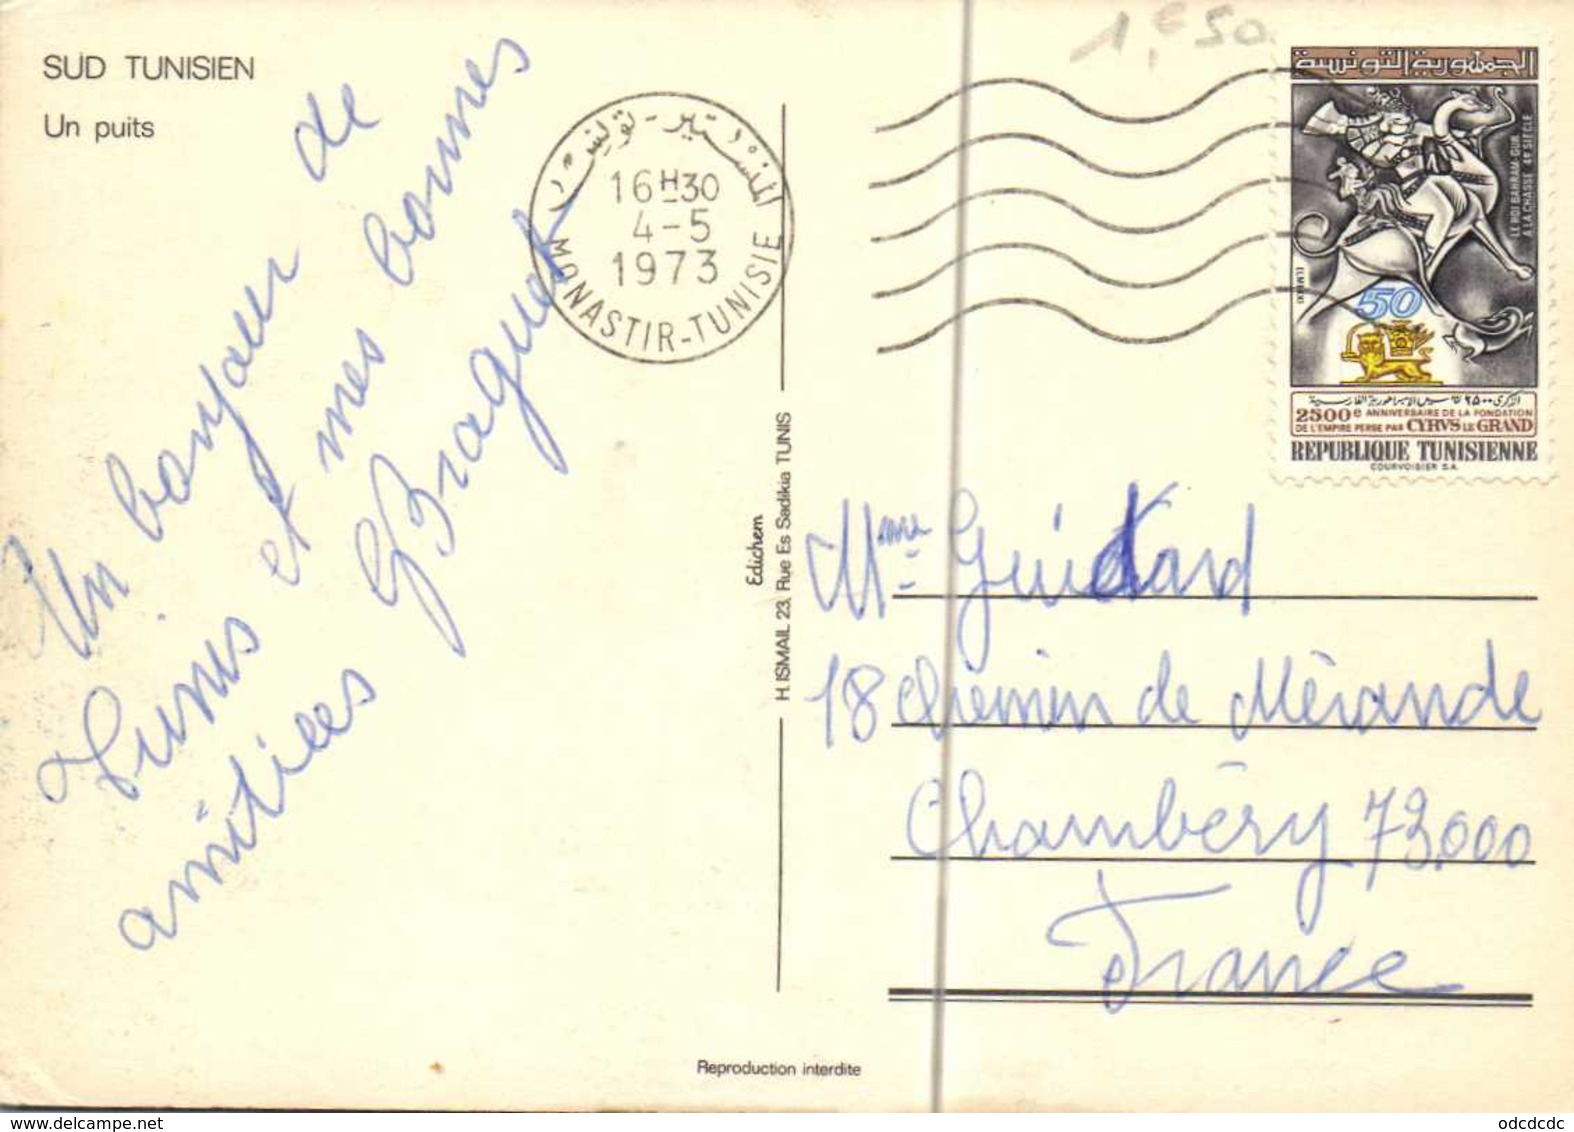 SUD TUNISIEN
Un puits
Un bonjour de
Tunis et mes bonnes
amitiées GBraguet
1,€50
المنستير - تونس ر.م
16H30
4-5
1973
MONASTIR-TUNISIE
الجمهورية التونسية
LE ROI BAHRAM-GUR
A LA CHASSE 4e SIECLE
ELMEKKI
50
2500e ANNIVERSAIRE DE LA FONDATION
DE L'EMPIRE PERSE PAR CYRVS LE GRAND
REPUBLIQUE TUNISIENNE
COURVOISIER S.A.
Edichem
H. ISMAIL 23, Rue Es Sadikia TUNIS
Mme Guichard
18 chemin de Mérande
Chambéry 73.000
France
Reproduction interdite
www.delcampe.net
odcdcdc